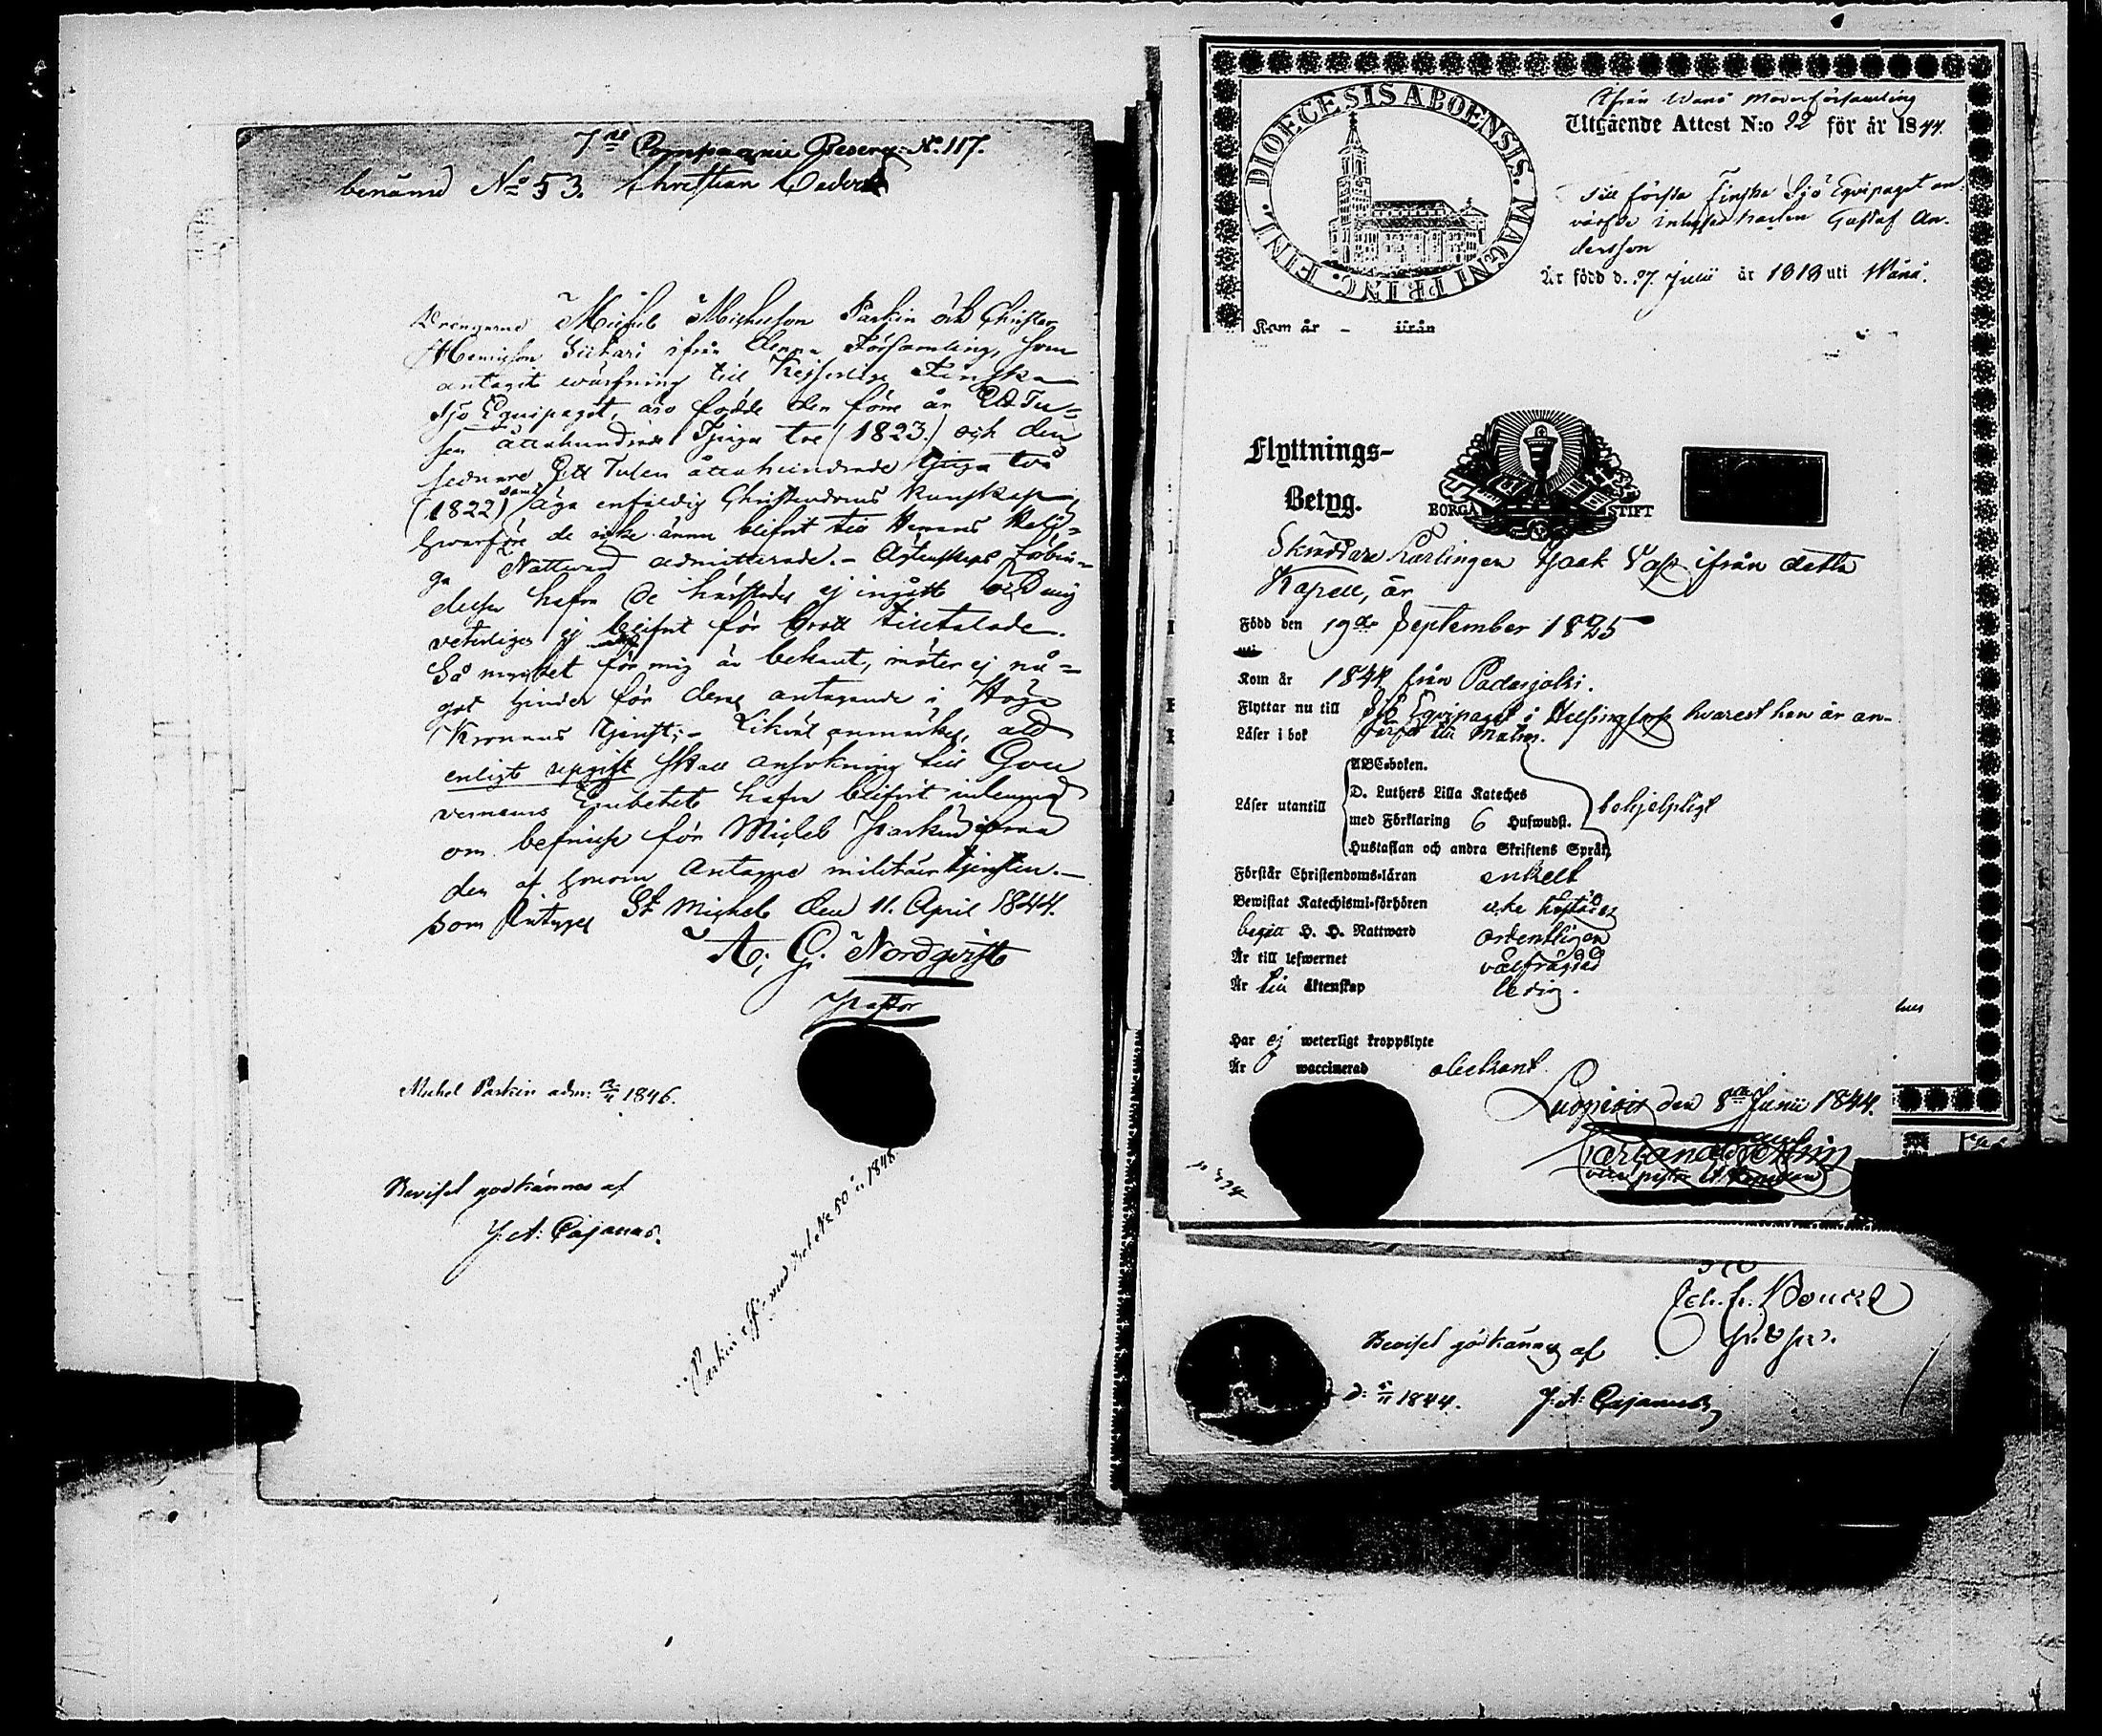 7de Compagnie Reserv: N:o 117.
benämd N:o 53. Christian
Drengarne Michel Michelson Parkin och Christer
Henrigson Siikari ifrån denna Församling, som
antagit wärfning till Kejserliga Finska
Sjö Equipaget, äro födde den förre år Ett Tu-
sen åttahundrade Tjugu tre (1823.) och den
sednare Ett Tusen åttahundrade tjugu två
(1822) samt äga enfaldig Christendoms kunskap,
hwarföre de icke ännu blifvit till Herrans Heli-
ga Nattward admitterade. - Äktenskaps förbin-
delser hafva de härstädes ej ingått och mig
veterligen ej blifvit för brott tilltalade.
Så mycket för mig är bekant, möter ej nå-
got hinder för deras antagande i Höga
Kronans tjenst; - Likväl anmärkes, att
enligt uppgift skall ansökning till Gou
verneurs Embetet hafva blifvit inlemnad
om befrielse för Michel Parkin ifrån
den af honom antagne militär tjensten. -
som Intygas St Michel den 11. April 1844.
A. G. Nordqvist
Pastor
Michel Parkin adm: 1846.
Beviset godkännes af
J. A: Cajanus.
Parkin med N:o 50 1848.
DIOECESIS ABOENSIS. MAGNI PRINC. FINL.
Ifrån Wånå Moderförsamling
Utgående Attest N:o 22 för år 1844.
till Första Finska Sjö Equipaget an-
värfde Gustaf An-
dersson
Är född d. 27. Julii år 1819 uti Wånå.
Kom år - ifrån
Flyttnings-
Betyg.
BORGÅ STIFT
Skräddare Lärlingen Isaak ifrån detta
Kapell, är
Född den 19de September 1825
uti
Kom år 1844 från Padasjoki.
Flyttar nu till Sjö Eqvipaget i Helsingfors hvarest han är an-
Läser i bok värfvad till Matros.
ABC-boken.
D. Luthers Lilla Kateches
Läser utantill
med Förklaring 6 Hufwudst.
behjelpligt
Hustaflan och andra Skriftens Språk,
Förstår Christendoms-läran enkelt
Bewistat Katechismi-förhören icke härstädes
begått H. H. Nattward ordentligen
Är till lefwernet välfrägdad
Är till äktenskap ledig.
Har ej weterligt kroppslyte
Är waccinerad obekant.
Luopiois den 8de Junii 1844.
Beviset godkännes af
d: 1844. J. A: Cajanus